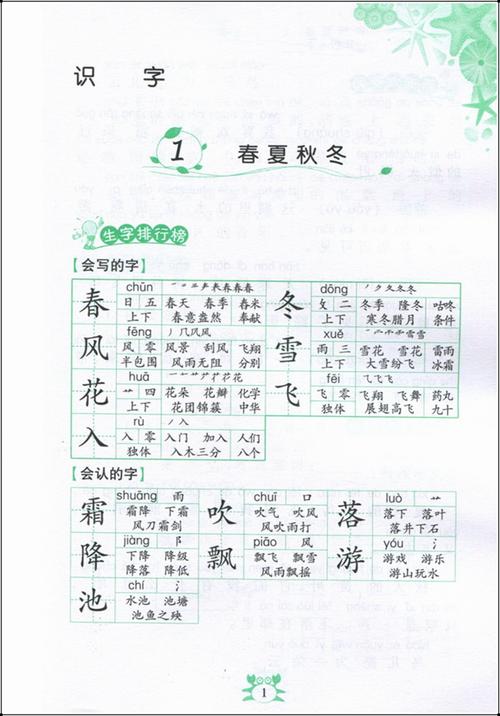 识 字
1 春夏秋冬
生字排行榜
【会写的字】
春 chūn
日 五 春天 春季 春米
上下 春意盎然 奉献
冬 dōng
夂 二 冬季 隆冬 咕咚
上下 寒冬腊月 条件
风 fēng
风 零 风景 刮风 飞翔
半包围 风雨无阻 分别
雪 xuě
雨 三 雪花 雪花 雷雨
上下 大雪纷飞 冰霜
花 huā
艹 四 花朵 花瓣 化学
上下 花团锦簇 中华
飞 fēi
飞 零 飞翔 飞舞 药丸
独体 展翅高飞 九十
入 rù
入 零 入门 加入 人们
独体 入木三分 八个
【会认的字】
霜 shuāng 雨
霜降 下霜
风刀霜剑
吹 chuī 口
吹气 吹风
风吹雨打
落 luò 艹
落下 落叶
落井下石
降 jiàng 阝
下降 降级
降落 降低
飘 piāo 风
飘飞 飘雪
风雨飘摇
游 yóu 氵
游戏 游乐
游山玩水
池 chí 氵
水池 池塘
池鱼之殃
1